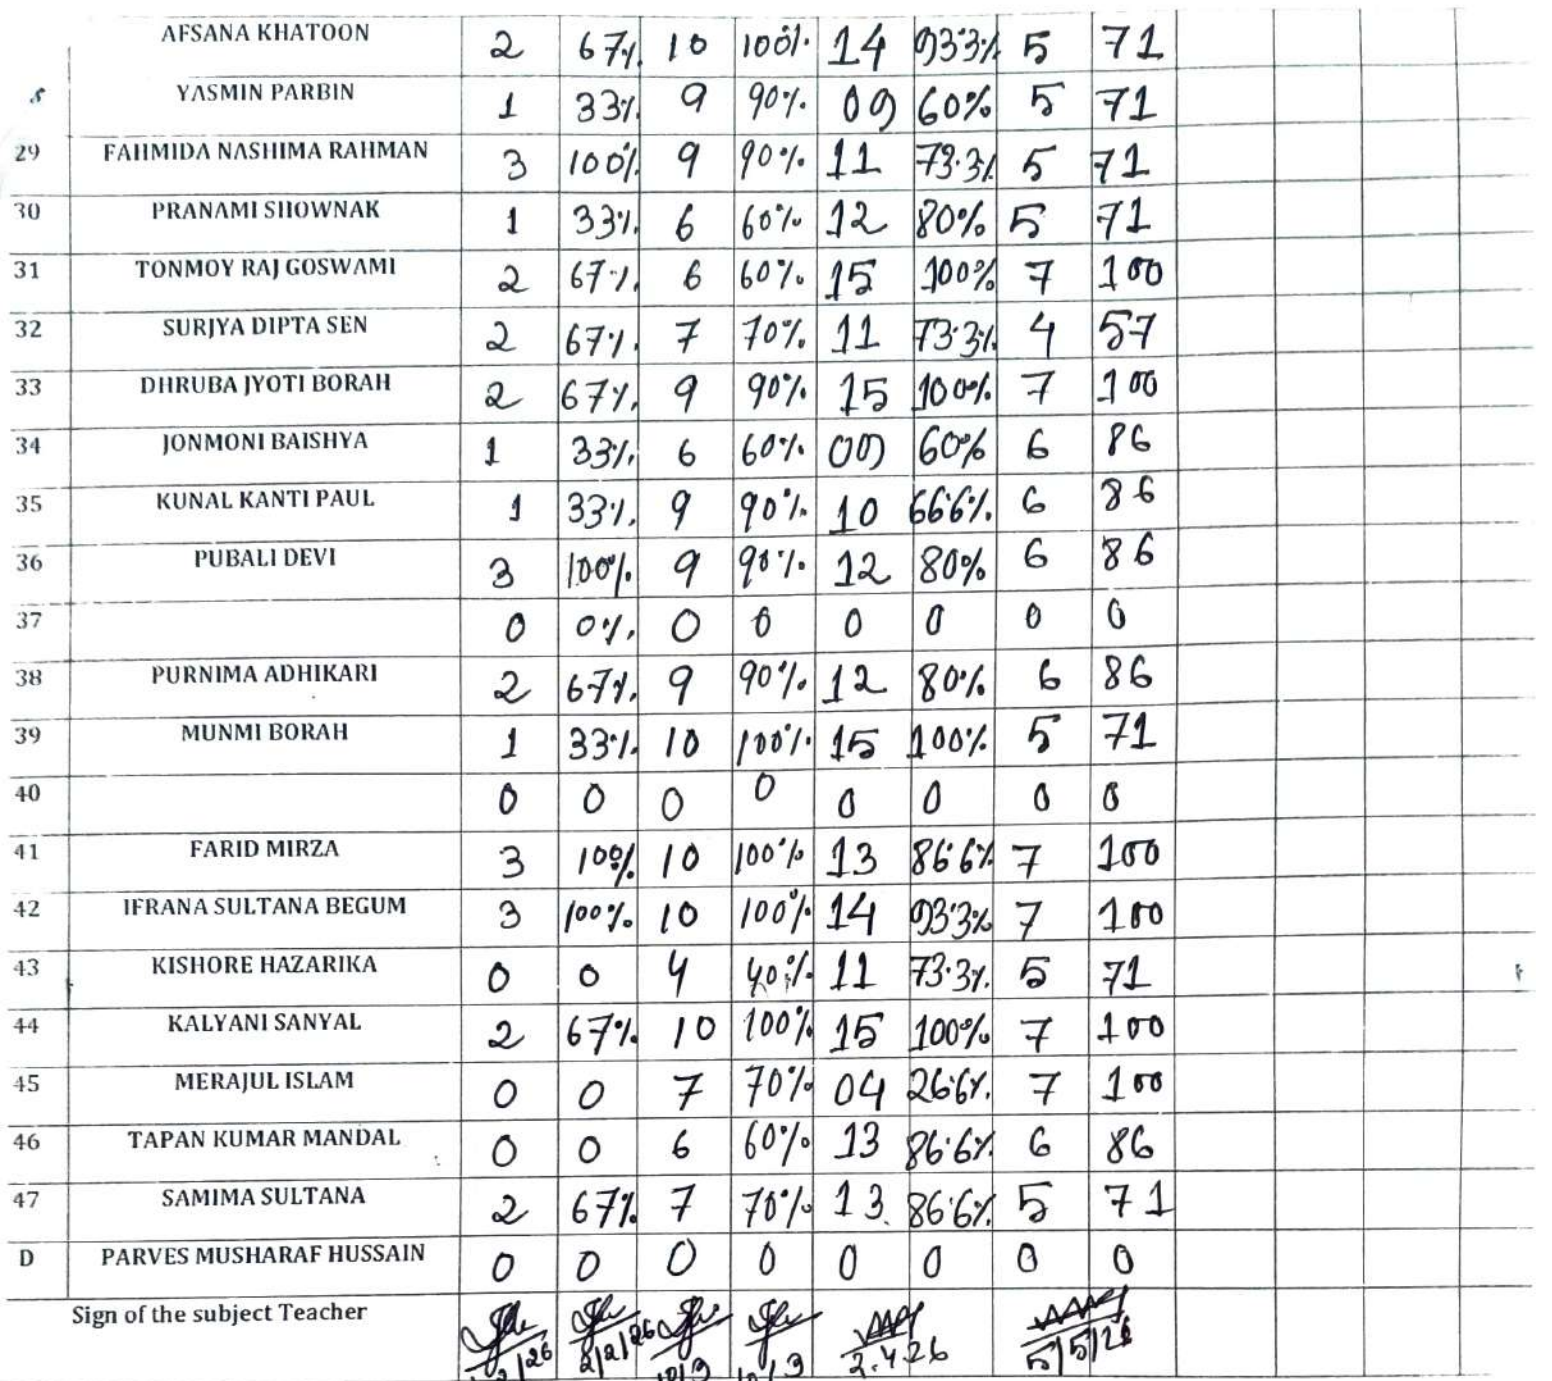 AFSANA KHATOON 2 67% 10 100% 14 93.3% 5 71
YASMIN PARBIN 1 33% 9 90% 09 60% 5 71
29 FAHMIDA NASHIMA RAHMAN 3 100% 9 90% 11 73.3% 5 71
30 PRANAMI SHOWNAK 1 33% 6 60% 12 80% 5 71
31 TONMOY RAJ GOSWAMI 2 67% 6 60% 15 100% 7 100
32 SURJYA DIPTA SEN 2 67% 7 70% 11 73.3% 4 57
33 DHRUBA JYOTI BORAH 2 67% 9 90% 15 100% 7 100
34 JONMONI BAISHYA 1 33% 6 60% 09 60% 6 86
35 KUNAL KANTI PAUL 1 33% 9 90% 10 66.6% 6 86
36 PUBALI DEVI 3 100% 9 90% 12 80% 6 86
37 0 0% 0 0 0 0 0 0
38 PURNIMA ADHIKARI 2 67% 9 90% 12 80% 6 86
39 MUNMI BORAH 1 33% 10 100% 15 100% 5 71
40 0 0 0 0 0 0 0 0
41 FARID MIRZA 3 100% 10 100% 13 86.6% 7 100
42 IFRANA SULTANA BEGUM 3 100% 10 100% 14 93.3% 7 100
43 KISHORE HAZARIKA 0 0 4 40% 11 73.3% 5 71
44 KALYANI SANYAL 2 67% 10 100% 15 100% 7 100
45 MERAJUL ISLAM 0 0 7 70% 04 26.6% 7 100
46 TAPAN KUMAR MANDAL 0 0 6 60% 13 86.6% 6 86
47 SAMIMA SULTANA 2 67% 7 70% 13 86.6% 5 71
D PARVES MUSHARAF HUSSAIN 0 0 0 0 0 0 0 0
Sign of the subject Teacher 2/2/26 2.4.26 5/5/26